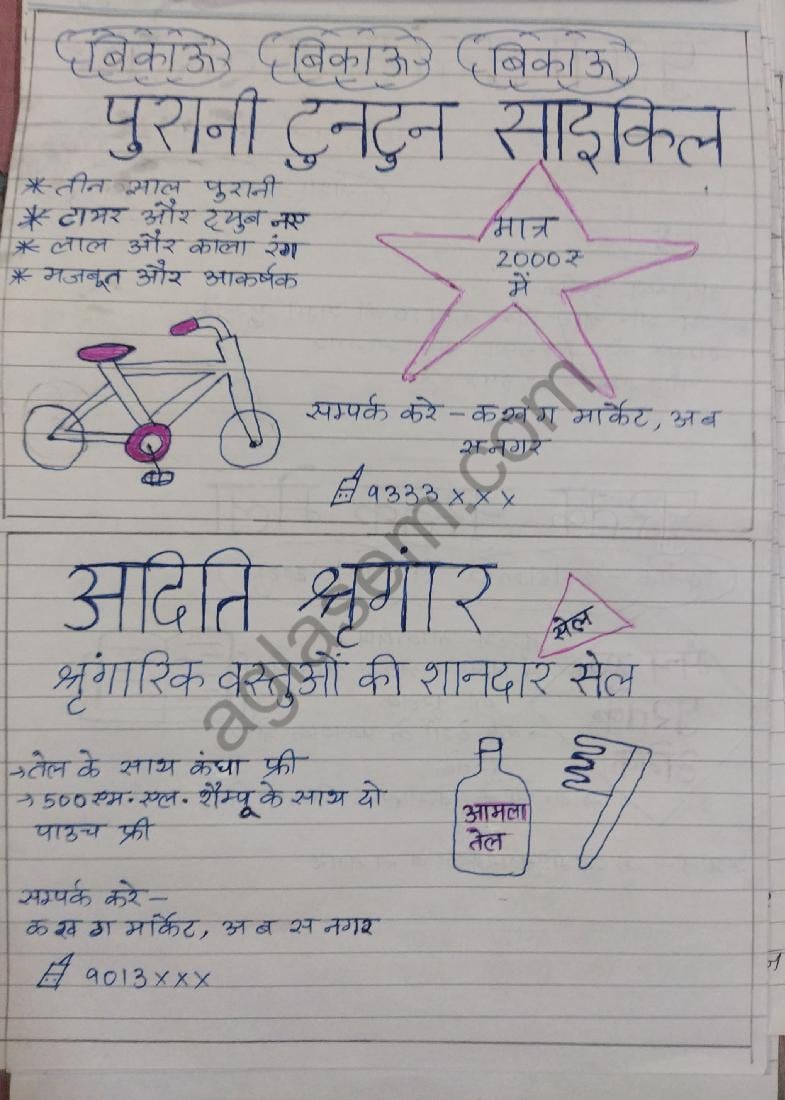 बिकाऊ बिकाऊ बिकाऊ
पुरानी टुनटुन साइकिल
* तीन साल पुरानी
* टायर और ट्युब नए
* लाल और काला रंग
* मजबूत और आकर्षक
मात्र
2000रु
में
सम्पर्क करे - क ख ग मार्केट, अ ब
स नगर
9333xxx
अदिति श्रृगांर
सेल
श्रृंगारिक वस्तुओं की शानदार सेल
→ तेल के साथ कंघा फ्री
→ 500 एम. एल. शैम्पू के साथ दो
पाउच फ्री
आमला
तेल
सम्पर्क करे -
क ख ग मार्केट, अ ब स नगर
9013xxx
aglasem.com